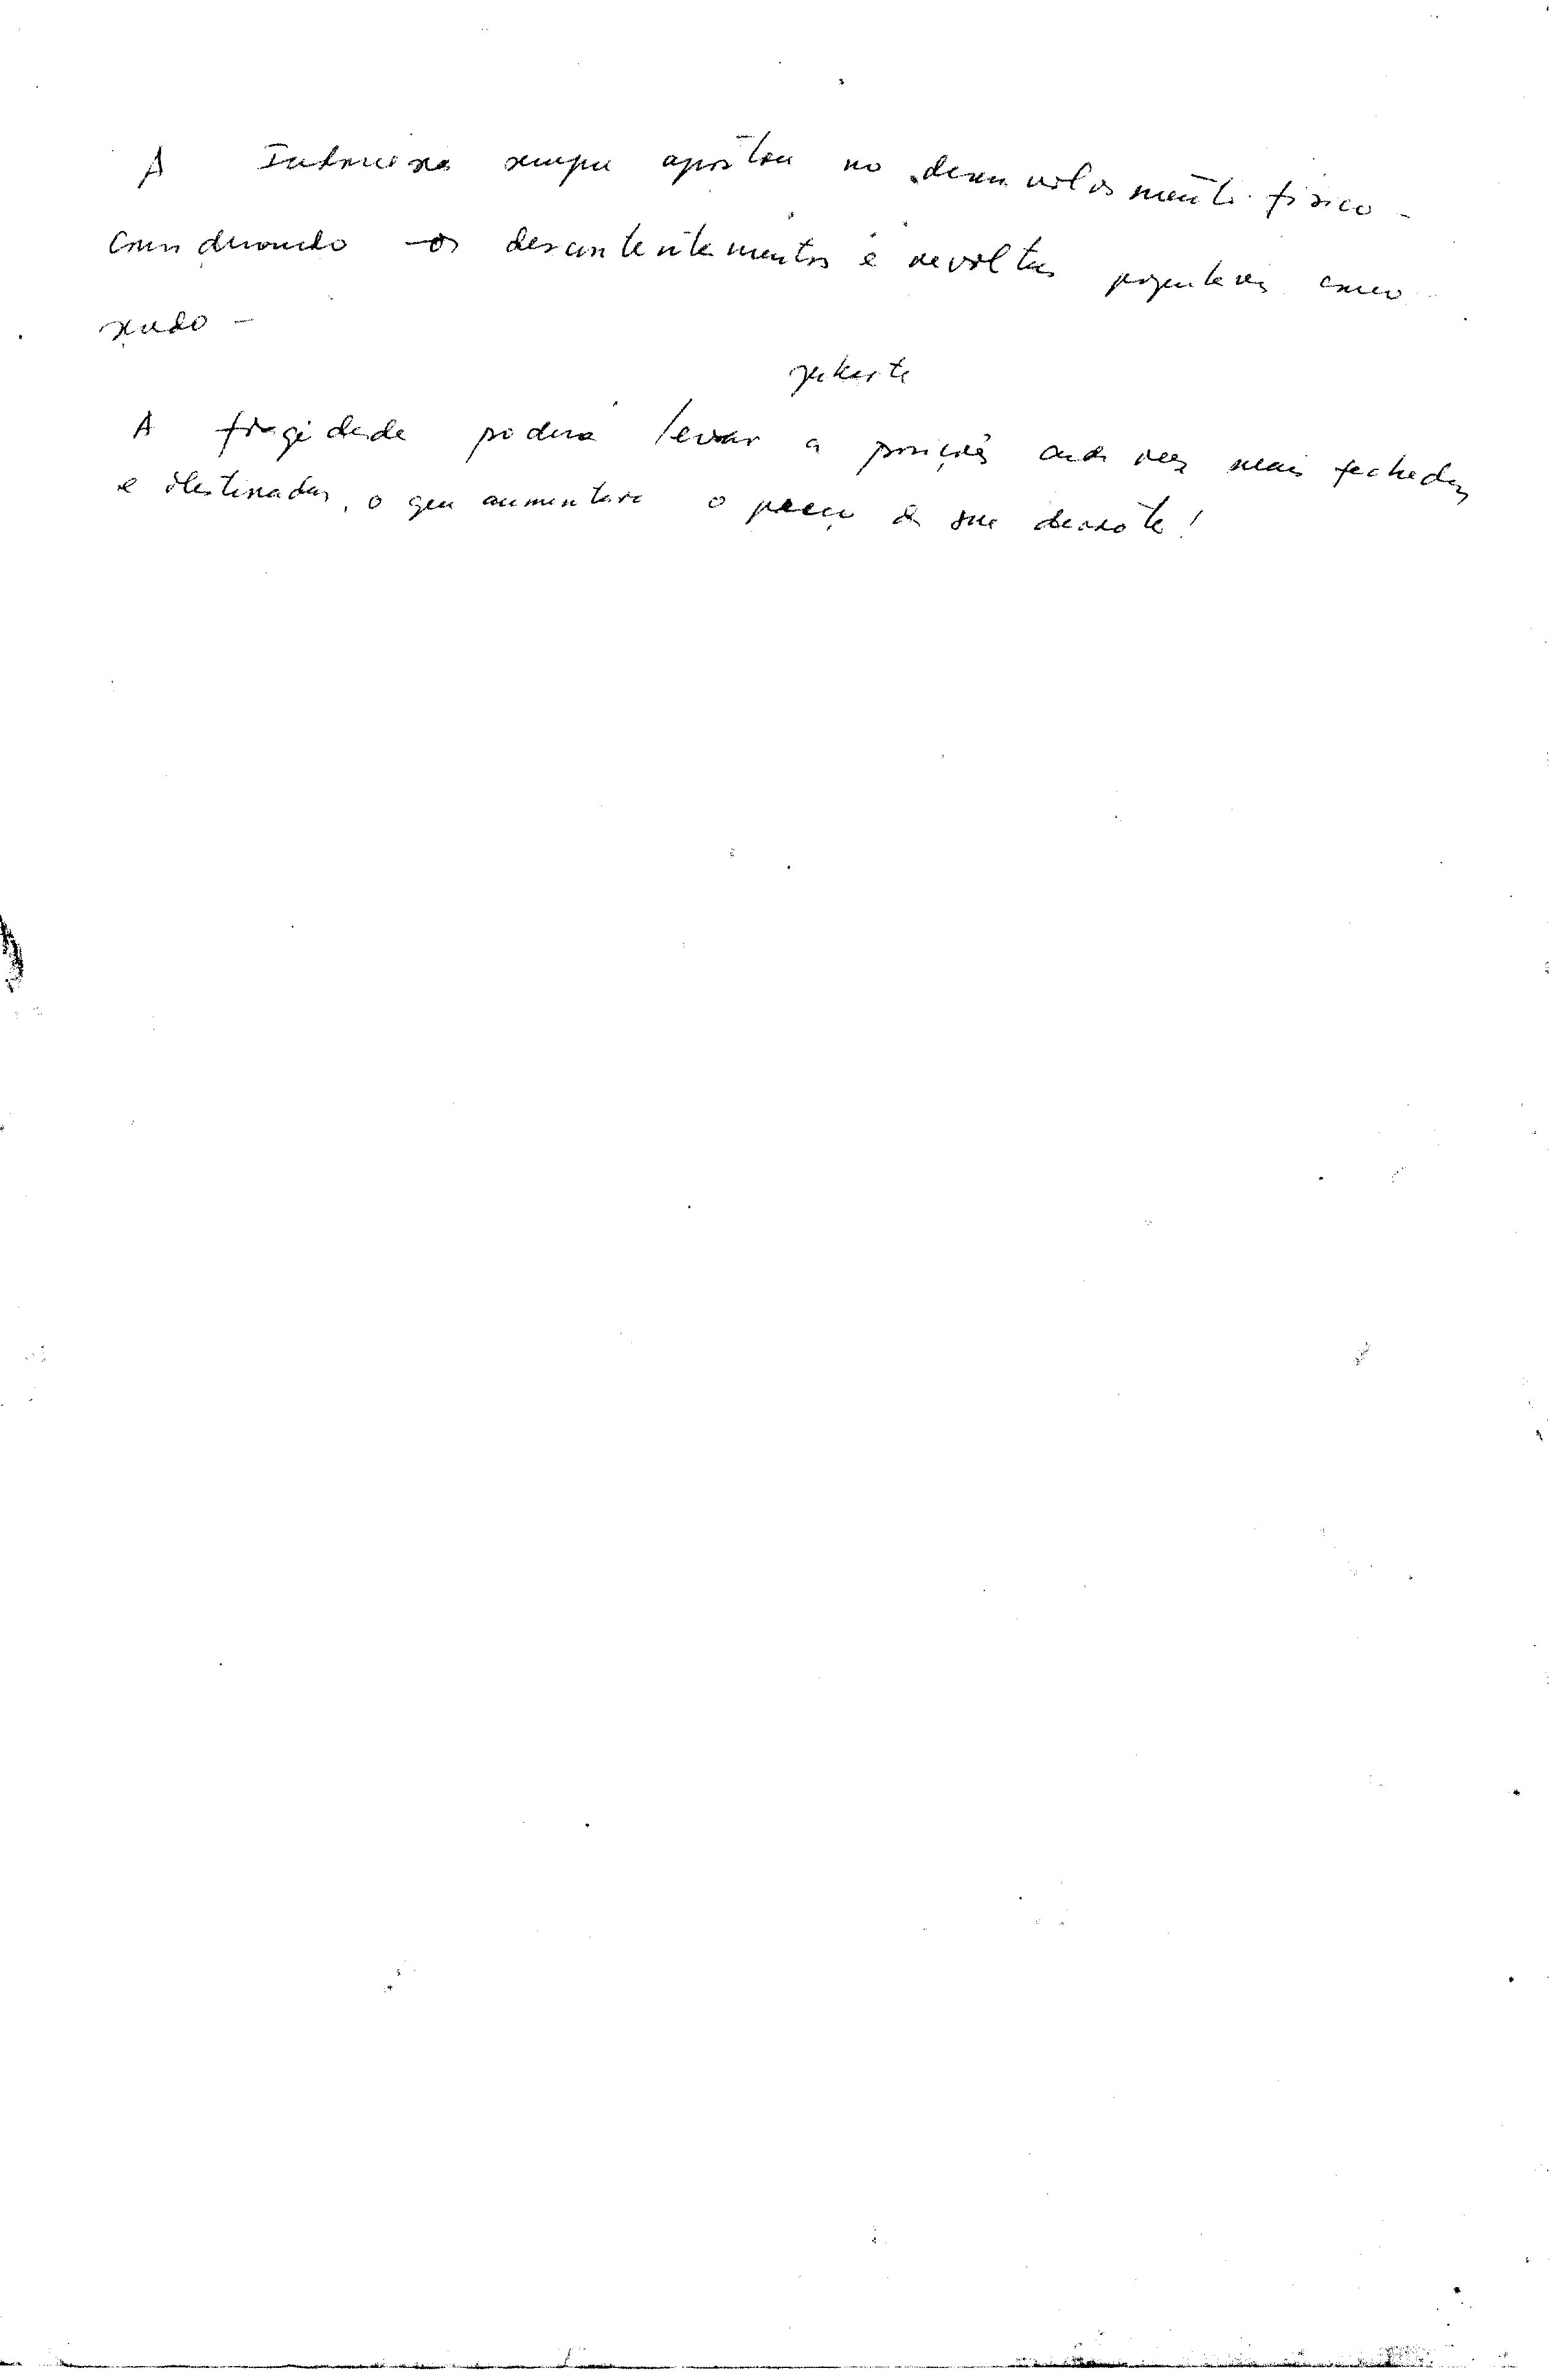 A Indonésia sempre apostou no desenvolvimento físico -
considerando os descontentamentos e revoltas populares como
nado -
Jakarta
A fragidade poderá levar a posições cada vez mais fechadas
e obstinadas, o que aumentará o preço da sua derrota!